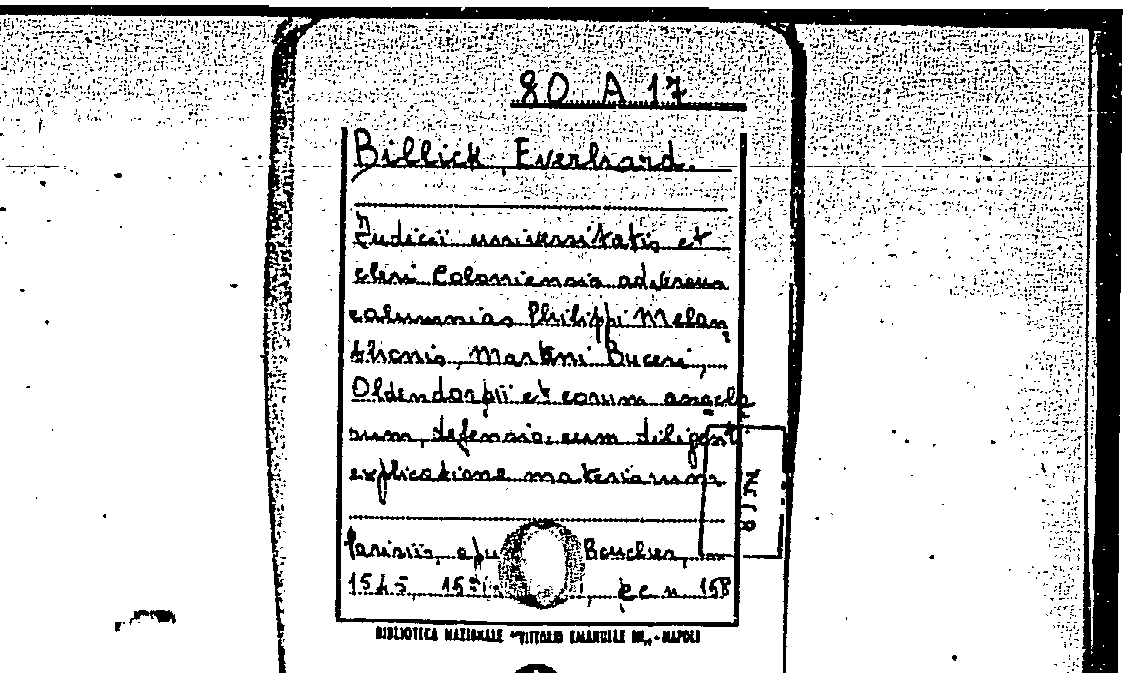 80 A 17
Billick Everhard.
Judicii universitatis et
cleri Coloniensis adversus
calumnias Philippi Melan
thonis, Martini Buceri,
Oldendorpii et eorum asecla
rum, defensio, cum diligent
explicatione materiarum
Parisiis, apu Boucher,
1545, 16 , pc n 158
BIBLIOTECA NAZIONALE "VITTORIO EMANUELE III" - NAPOLI